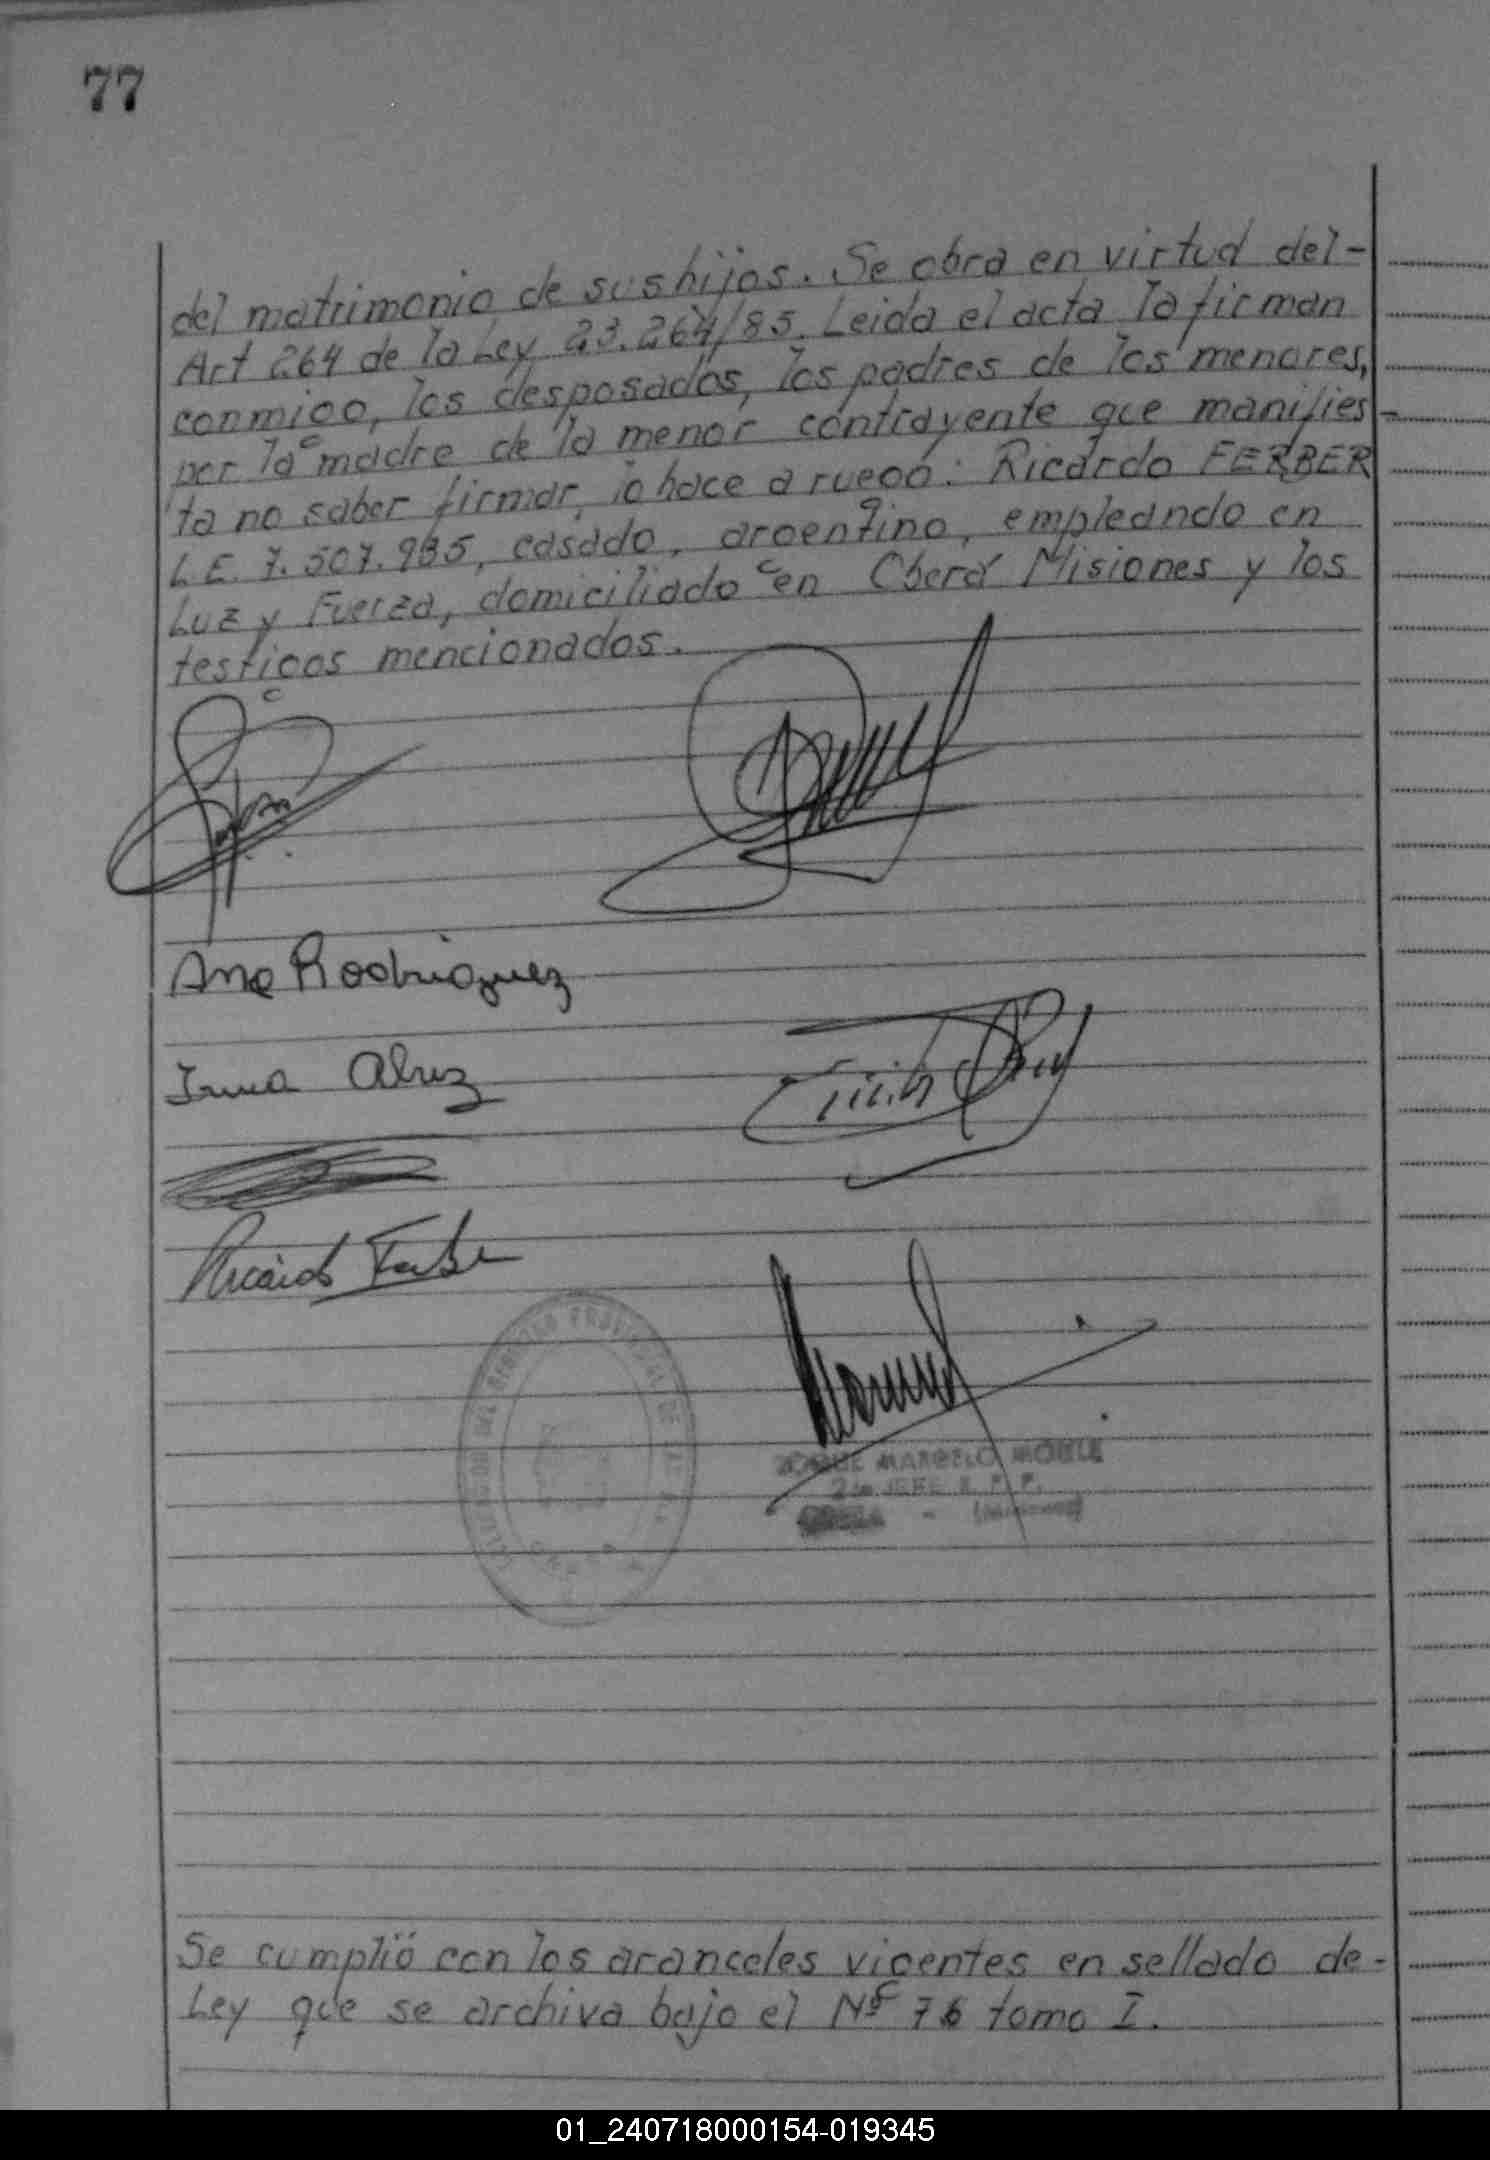 77
del matrimonio de sus hijos. Se obra en virtud del-
Art 264 de la Ley 23.264/85. Leida el acta la firman
conmigo, los desposados, los padres de los menores,
por la madre de la menor contrayente que manifies-
ta no saber firmar, lo hace a ruego: Ricardo FERBER
L.E. 7.507.935, casado, argentino, empleando en
Luz y Fuerza, domiciliado en Oberá Misiones y los
testigos mencionados.
Ana Rodriguez
Irma
Ricardo Ferber
PROVINCIAL DE LAS
MARCELO
2do JEFE R. P. P.
Se cumplió con los aranceles vigentes en sellado de-
Ley que se archiva bajo el Nº 76 tomo I.
01_240718000154-019345